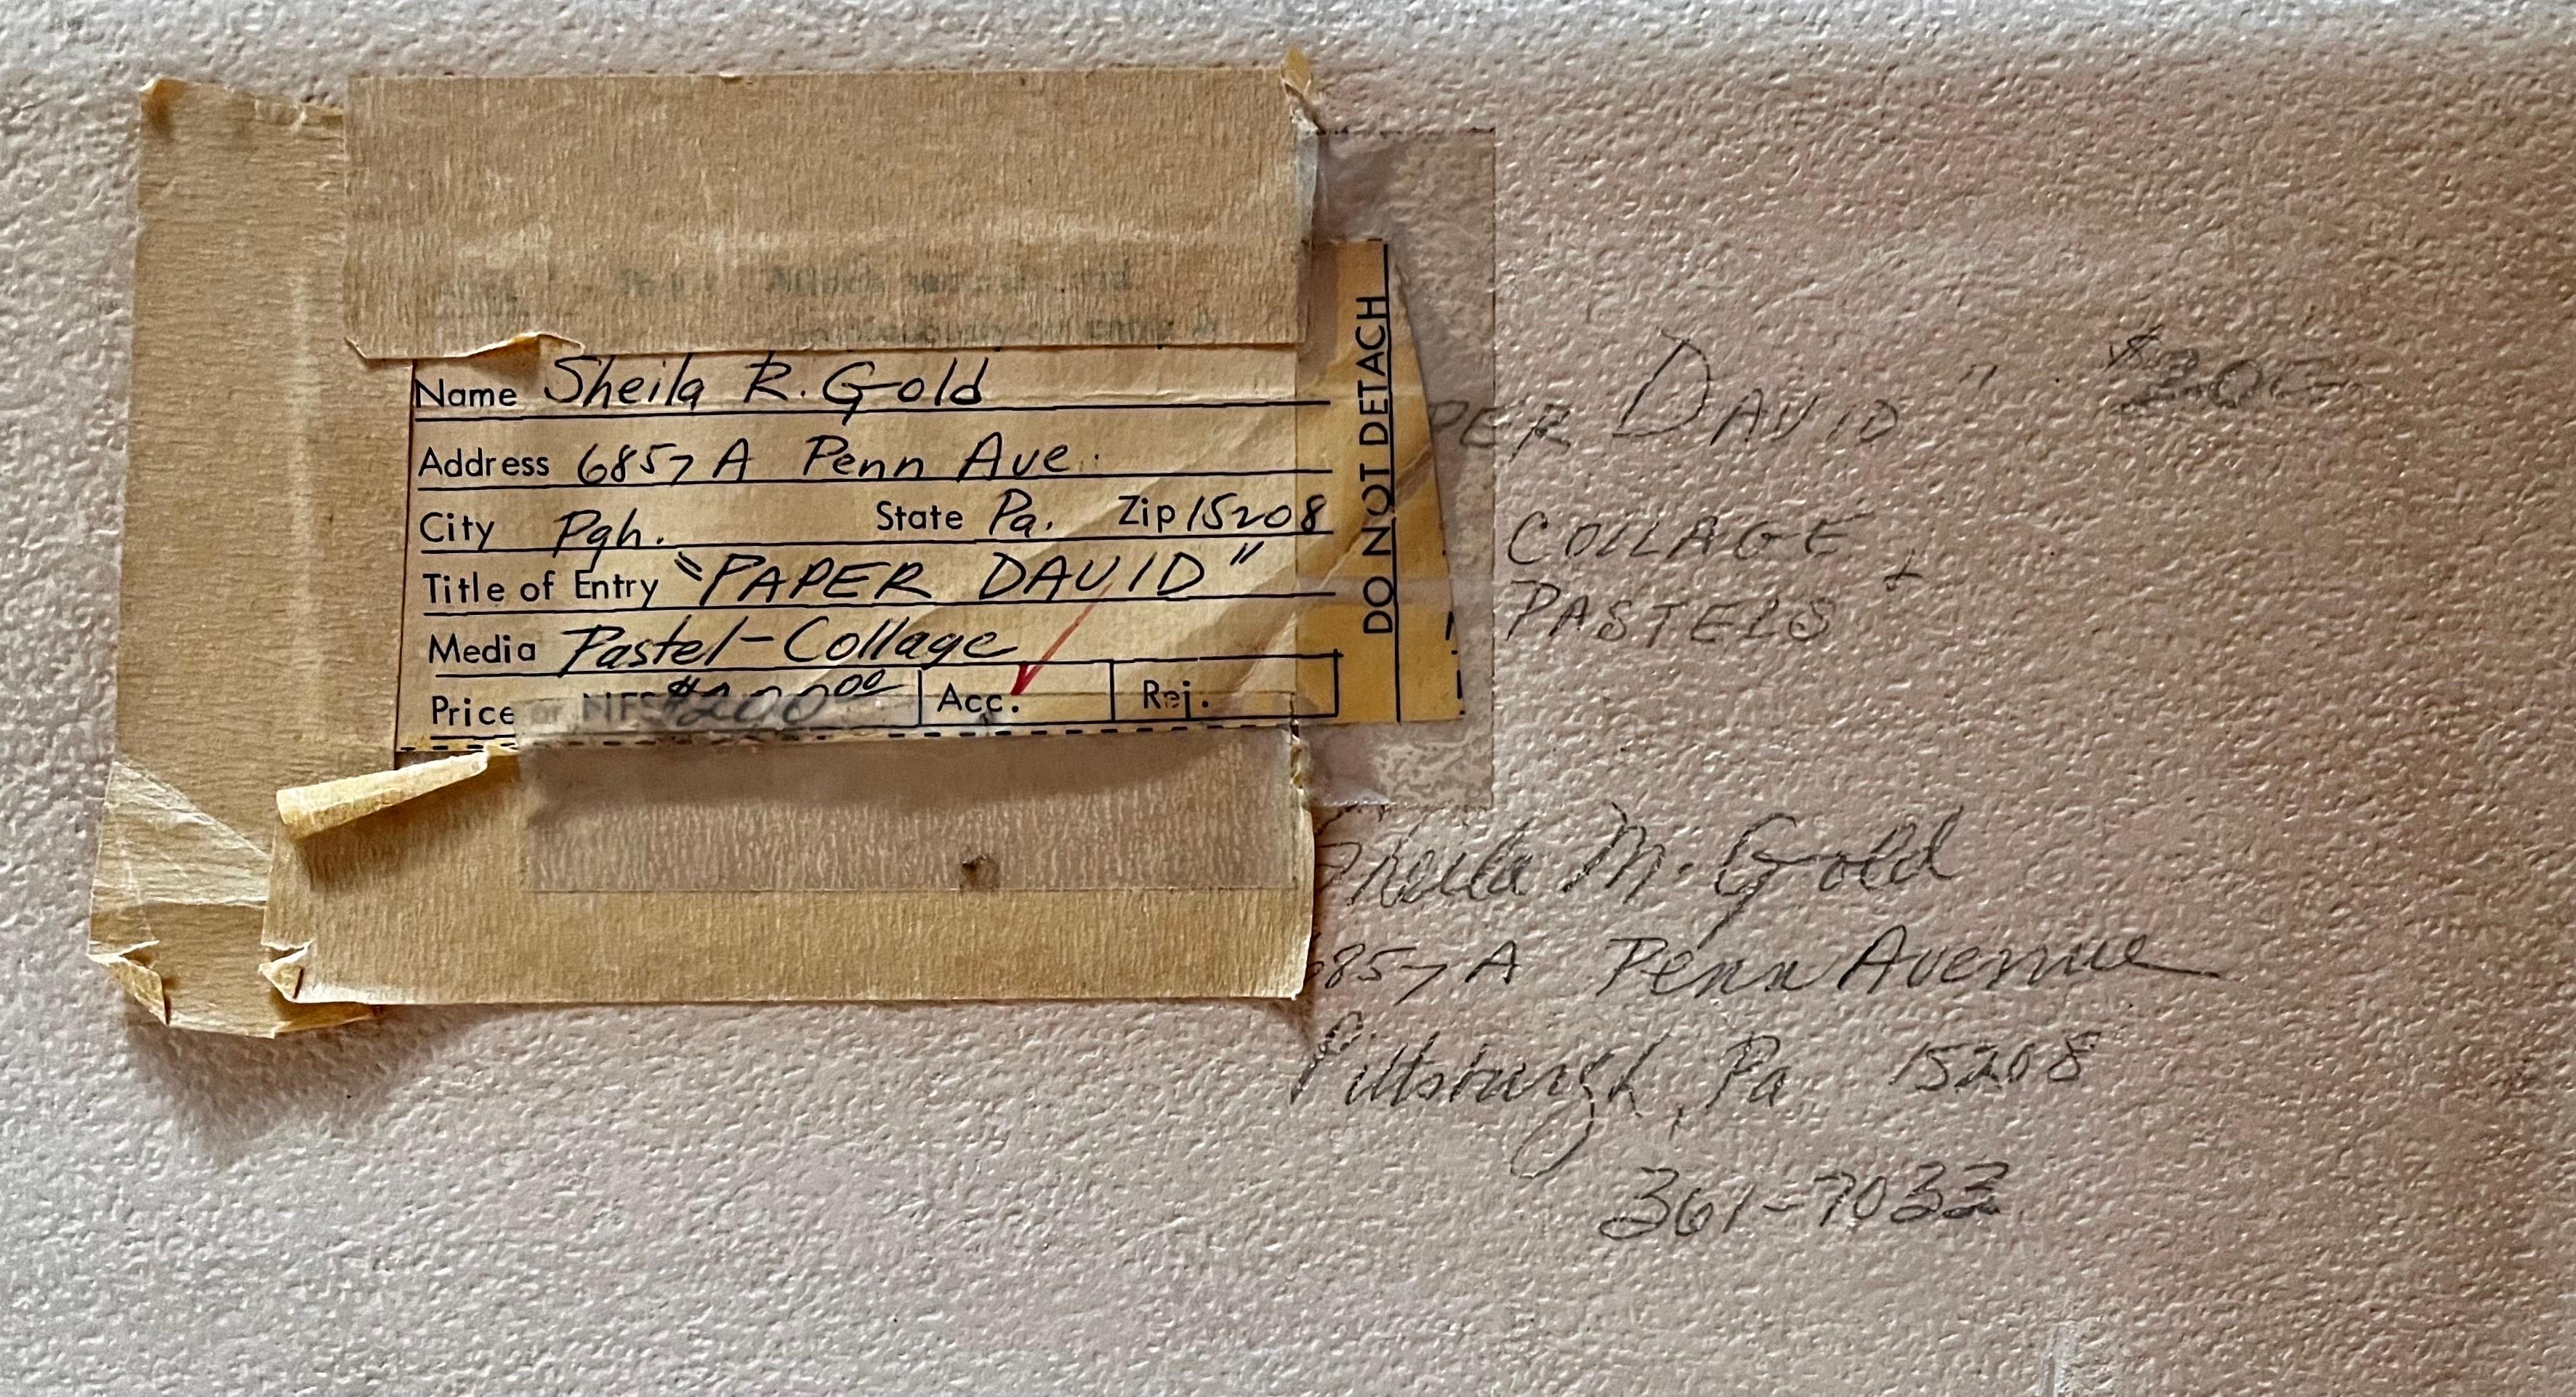 Name Sheila R. Gold
Address 6857 A Penn Ave.
City Pgh. State Pa. Zip 15208
Title of Entry "PAPER DAVID"
Media Pastel-Collage
Price or NFS $200.00 Acc. ✓ Rej.
DO NOT DETACH
PER DAVID" $200
COLLAGE +
PASTELS
Sheila M. Gold
6857 A Penn Avenue
Pittsburgh, Pa 15208
361-7033